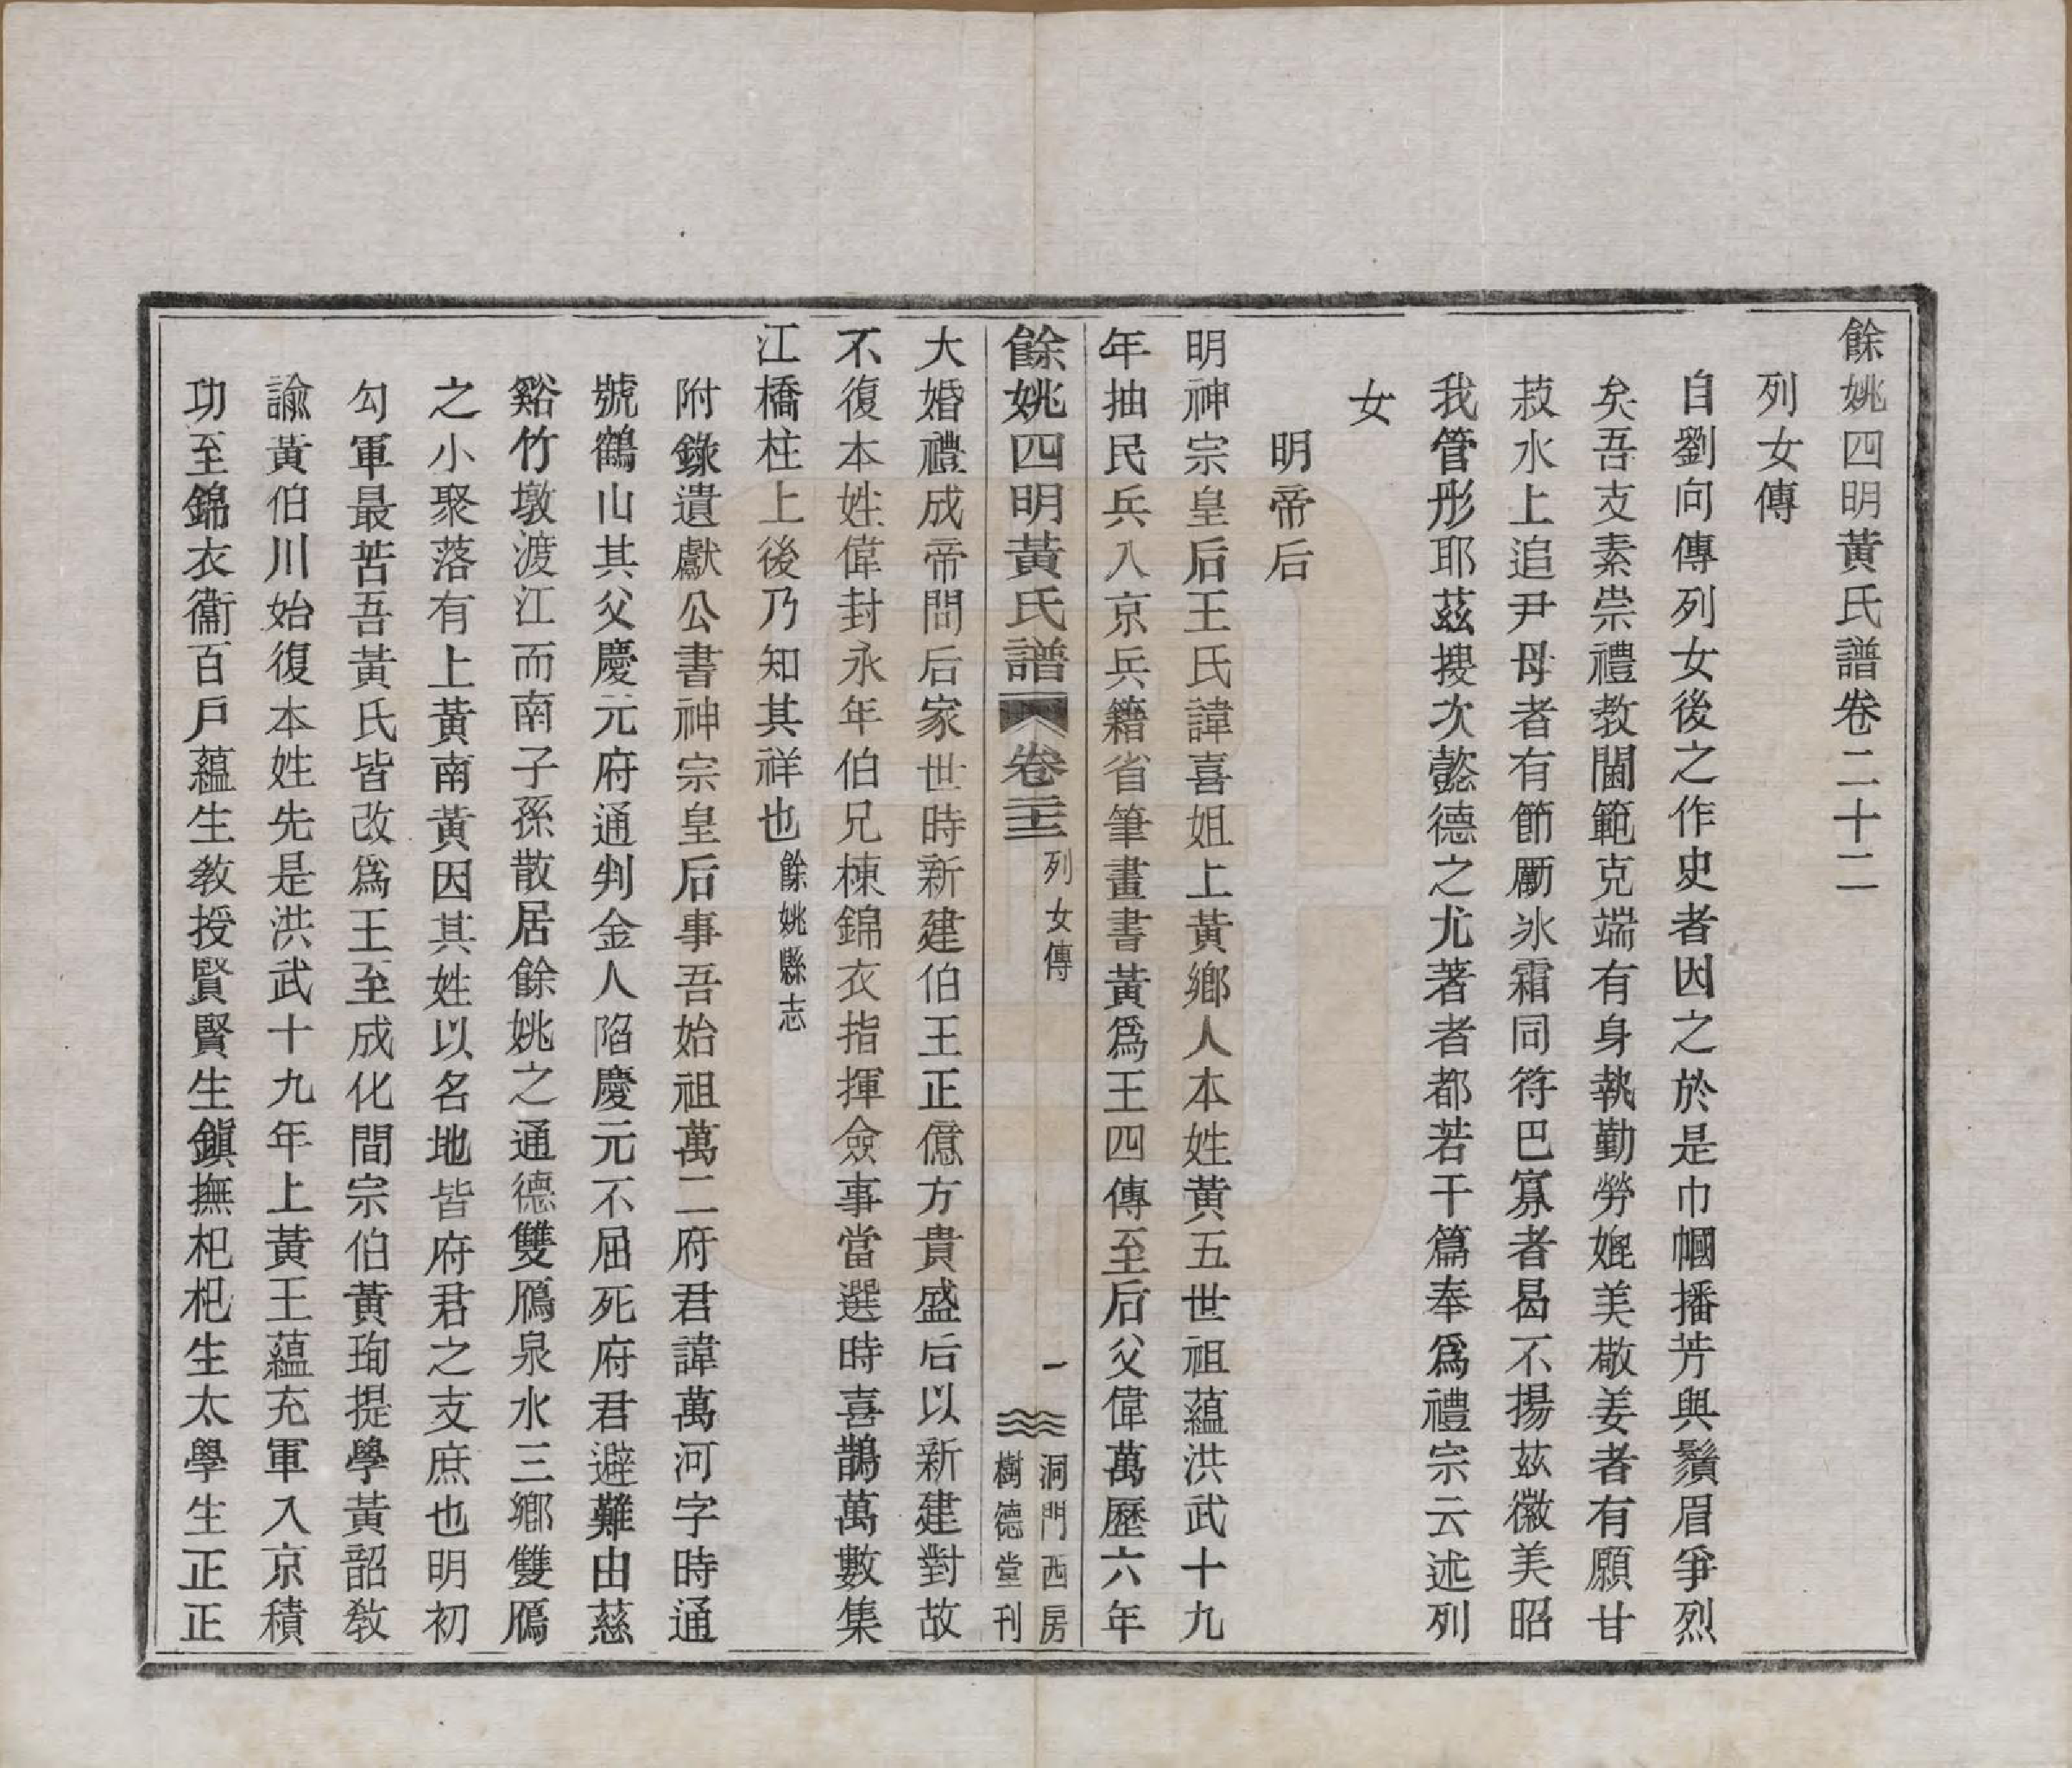 餘姚四明黃氏譜卷二十二
列女傳
自劉向傳列女後之作史者因之於是巾幗播芳與鬚眉爭烈
矣吾支素崇禮教閫範克端有身執勤勞媲美敬姜者有願甘
菽水上追尹母者有節厲氷霜同符巴寡者曷不揚茲徽美昭
我管彤耶茲搜次懿德之尤著者都若干篇奉爲禮宗云述列
女
明帝后
明神宗皇后王氏諱喜姐上黃鄉人本姓黃五世祖蘊洪武十九
年抽民兵入京兵籍省筆畫書黃爲王四傳至后父偉萬歷六年
餘姚四明黃氏譜 卷二十二 列女傳 一 洞門西房 樹德堂刊
大婚禮成帝問后家世時新建伯王正億方貴盛后以新建對故
不復本姓偉封永年伯兄棟錦衣指揮僉事當選時喜鵲萬數集
江橋柱上後乃知其祥也餘姚縣志
附錄遺獻公書神宗皇后事吾始祖萬二府君諱萬河字時通
號鶴山其父慶元府通判金人陷慶元不屈死府君避難由慈
谿竹墩渡江而南子孫散居餘姚之通德雙鴈泉水三鄉雙鴈
之小聚落有上黃南黃因其姓以名地皆府君之支庶也明初
勾軍最苦吾黃氏皆改爲王至成化間宗伯黃珣提學黃韶教
諭黃伯川始復本姓先是洪武十九年上黃王蘊充軍入京積
功至錦衣衞百戶蘊生教授賢賢生鎭撫杞杞生太學生正正